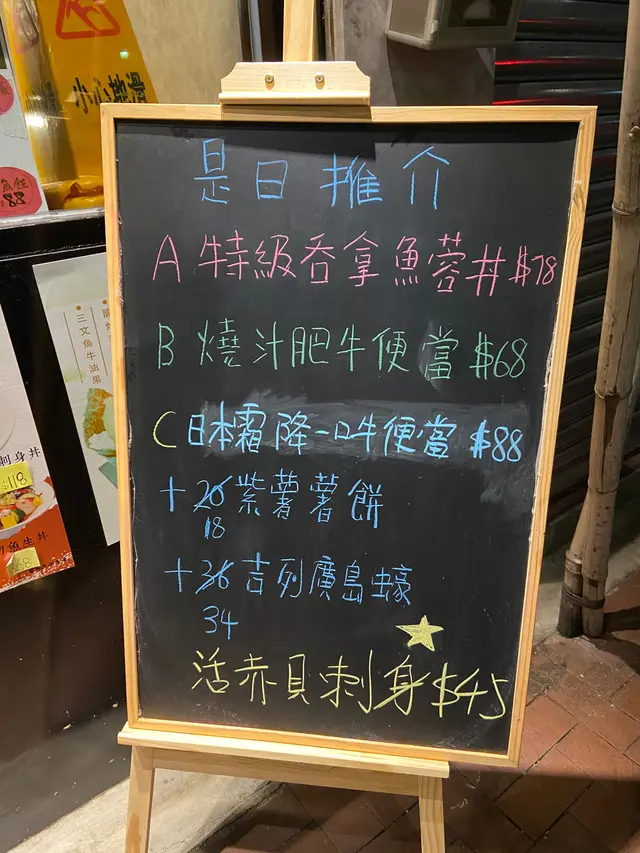 小心地滑
是日推介
A 特級吞拿魚蓉丼 $78
B 燒汁肥牛便當 $68
C 日本霜降一口牛便當 $88
+ 20 紫薯薯餅
18
+ 36 吉列廣島蠔
34
活赤貝刺身 $45
88
三文魚牛油果
刺身丼
$118
魚生丼